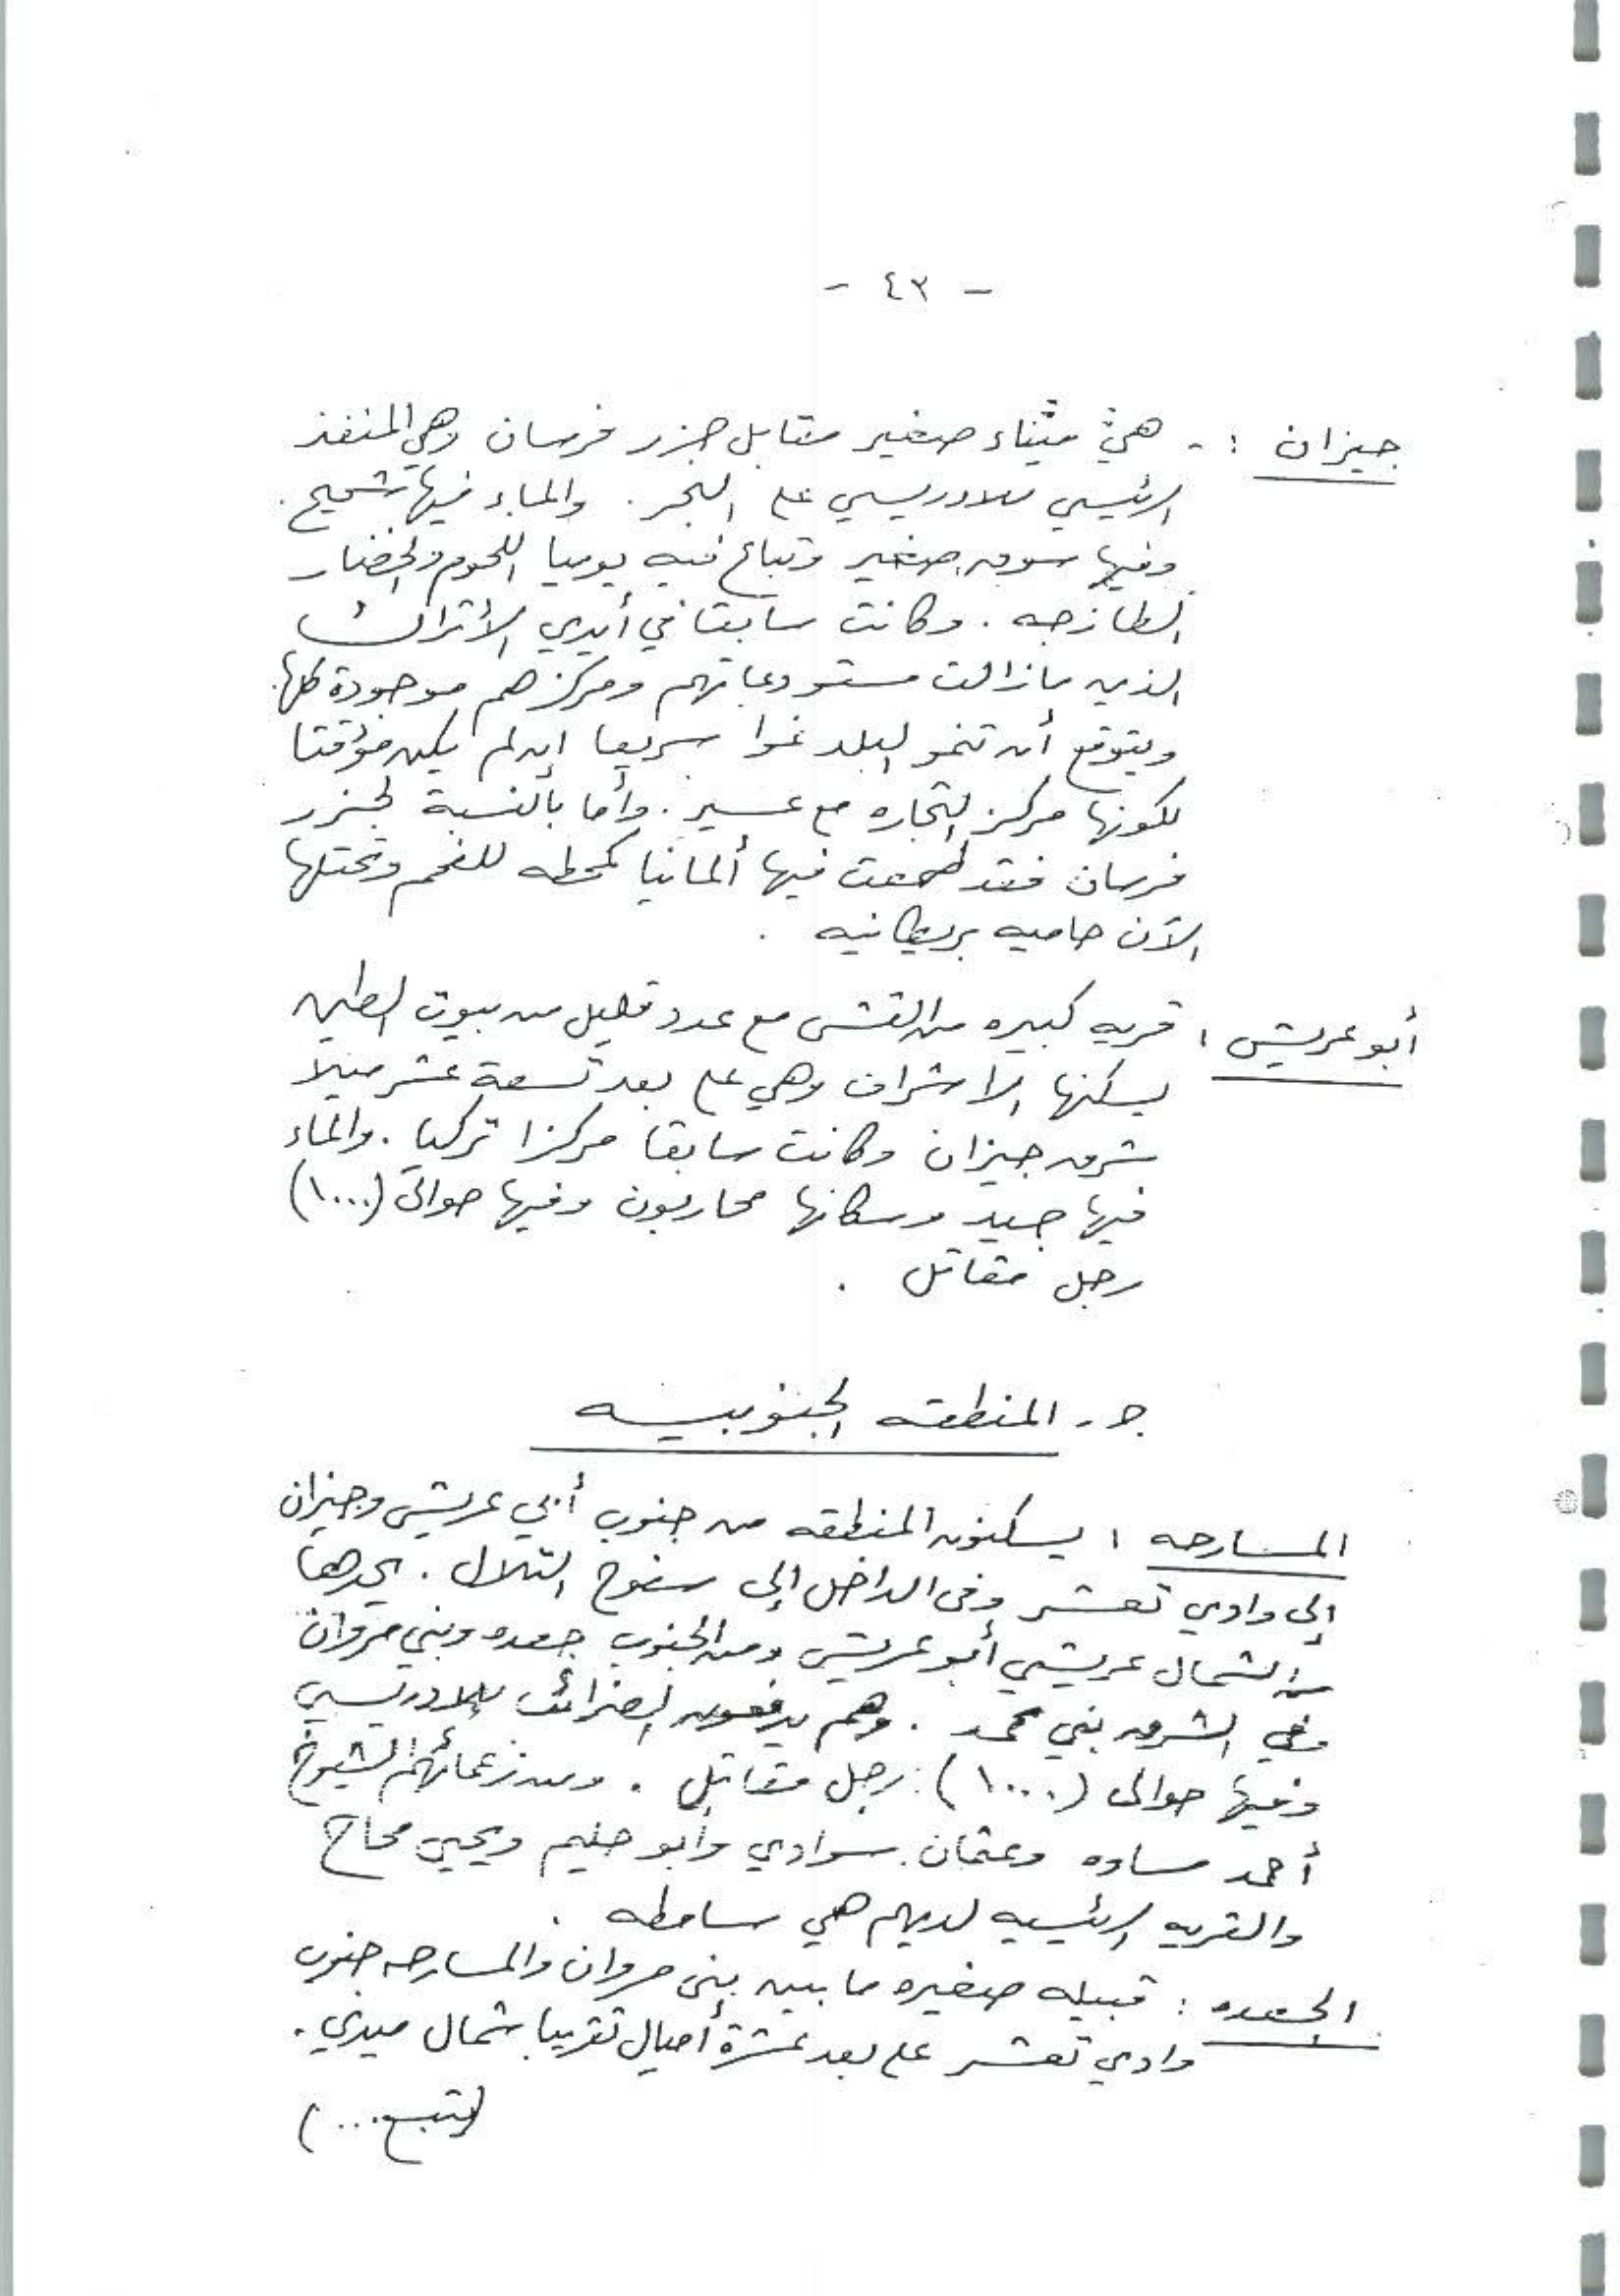 - ٤٣ -
جيزان :- هي ميناء صغير مقابل جزر فرسان وهي المنفذ
الرئيسي للادريسي على البحر . والماء فيها شحيح .
وفيها سوق صغير وتباع فيه يوميا اللحوم والخضار
الطازجه . وكانت سابقا في أيدي الأتراك
الذين مازالت مستودعاتهم ومركزهم موجودة كلها .
ويتوقع أن تنمو البلد نموا سريعا إن لم يكن مؤقتا
لكونها مركز التجاره مع عسير . وأما بالنسبة لجزر
فرسان فقد طمعت فيها ألمانيا كمحطه للفحم وتحتلها
الآن حاميه بريطانيه .
أبو عريش : قريه كبيره من القش مع عدد قليل من بيوت الطين
يسكنها الاشراف وهي على بعد تسعة عشر ميلا
شرق جيزان وكانت سابقا مركزا تركيا . والماء
فيها جيد وسكانها محاربون وفيها حوالي (١٠٠٠)
رجل مقاتل .
ج - المنطقه الجنوبيه
المسارحه : يسكنون المنطقه من جنوب أبي عريش وجيزان
إلى وادي تعشر وفي الداخل إلى سفوح التلال . يحدها
من الشمال عريشي أبو عريش ومن الجنوب جعده وبني مروان
وفي الشرق بني محمد . وهم يدفعون الضرائب للادريسي
وفيها حوالي (١٠٠٠) رجل مقاتل . ومن زعمائهم الشيوخ
أحمد مساوه وعثمان سوادي وأبو حليم ويحيى محاج
والقريه الرئيسيه لديهم هي سامطه .
الجعده : قبيله صغيره ما بين بني مروان والمسارحه جنوب
وادي تعشر على بعد عشرة أميال تقريبا شمال ميدي .
(يتبع ...)